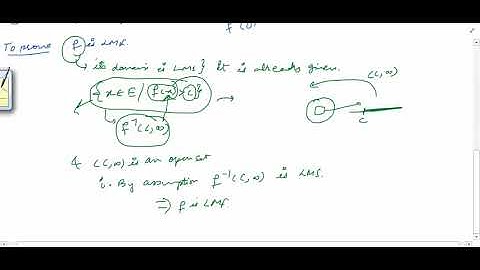 f (O)
To prove f is LMf.
its domain is LMS } It is already given.
{x ∈ E / f(x) > c}
(c, ∞)
f⁻¹(c, ∞)
c
& (c, ∞) is an open set
∴ By assumption f⁻¹(c, ∞) is LMS.
⇒ f is LMf.